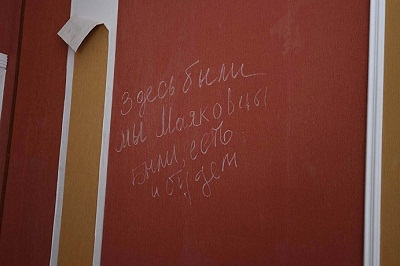 Здесь были
мы Маяковцы
были, есть
и будем